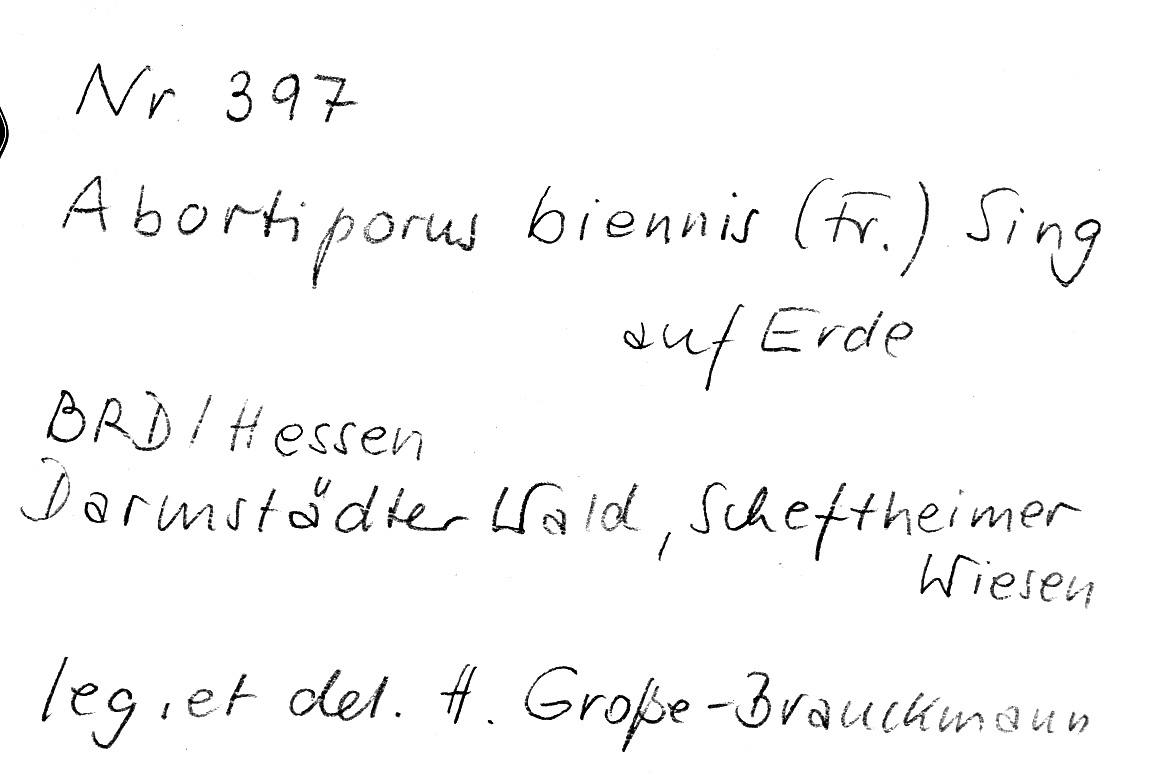 Nr 397
Abortiporus biennis (Fr.) Sing
auf Erde
BRD/Hessen
Darmstädter Wald, Scheftheimer
Wiesen
leg. et det. H. Große-Brauckmann